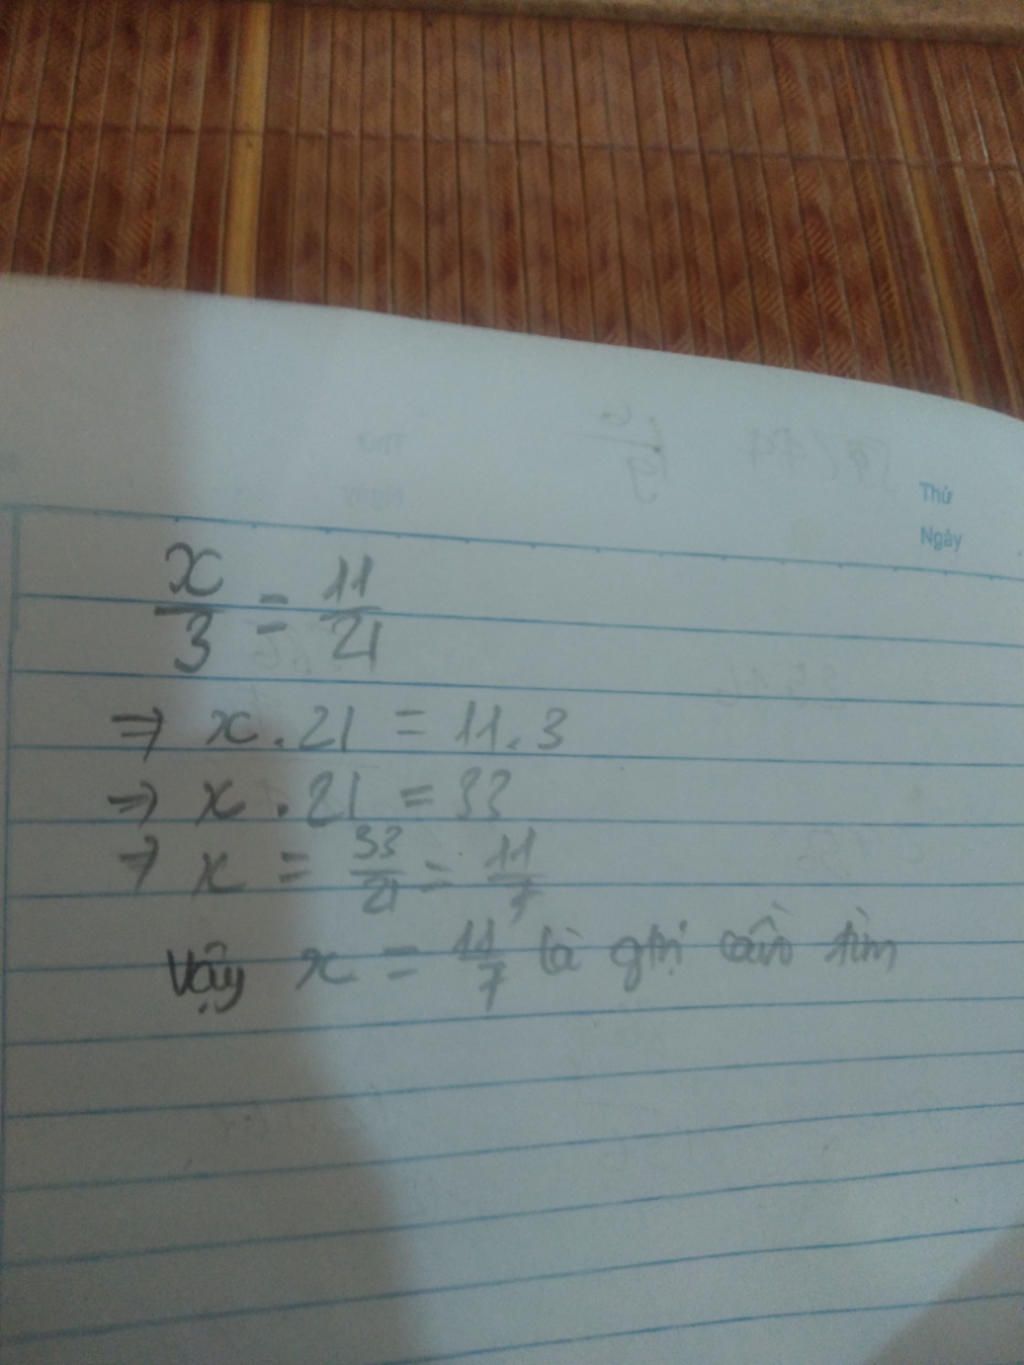 Thứ
Ngày
x/3 = 11/21
⇒ x . 21 = 11 . 3
⇒ x . 21 = 33
⇒ x = 33/21 = 11/7
Vậy x = 11/7 là gtrị cần tìm